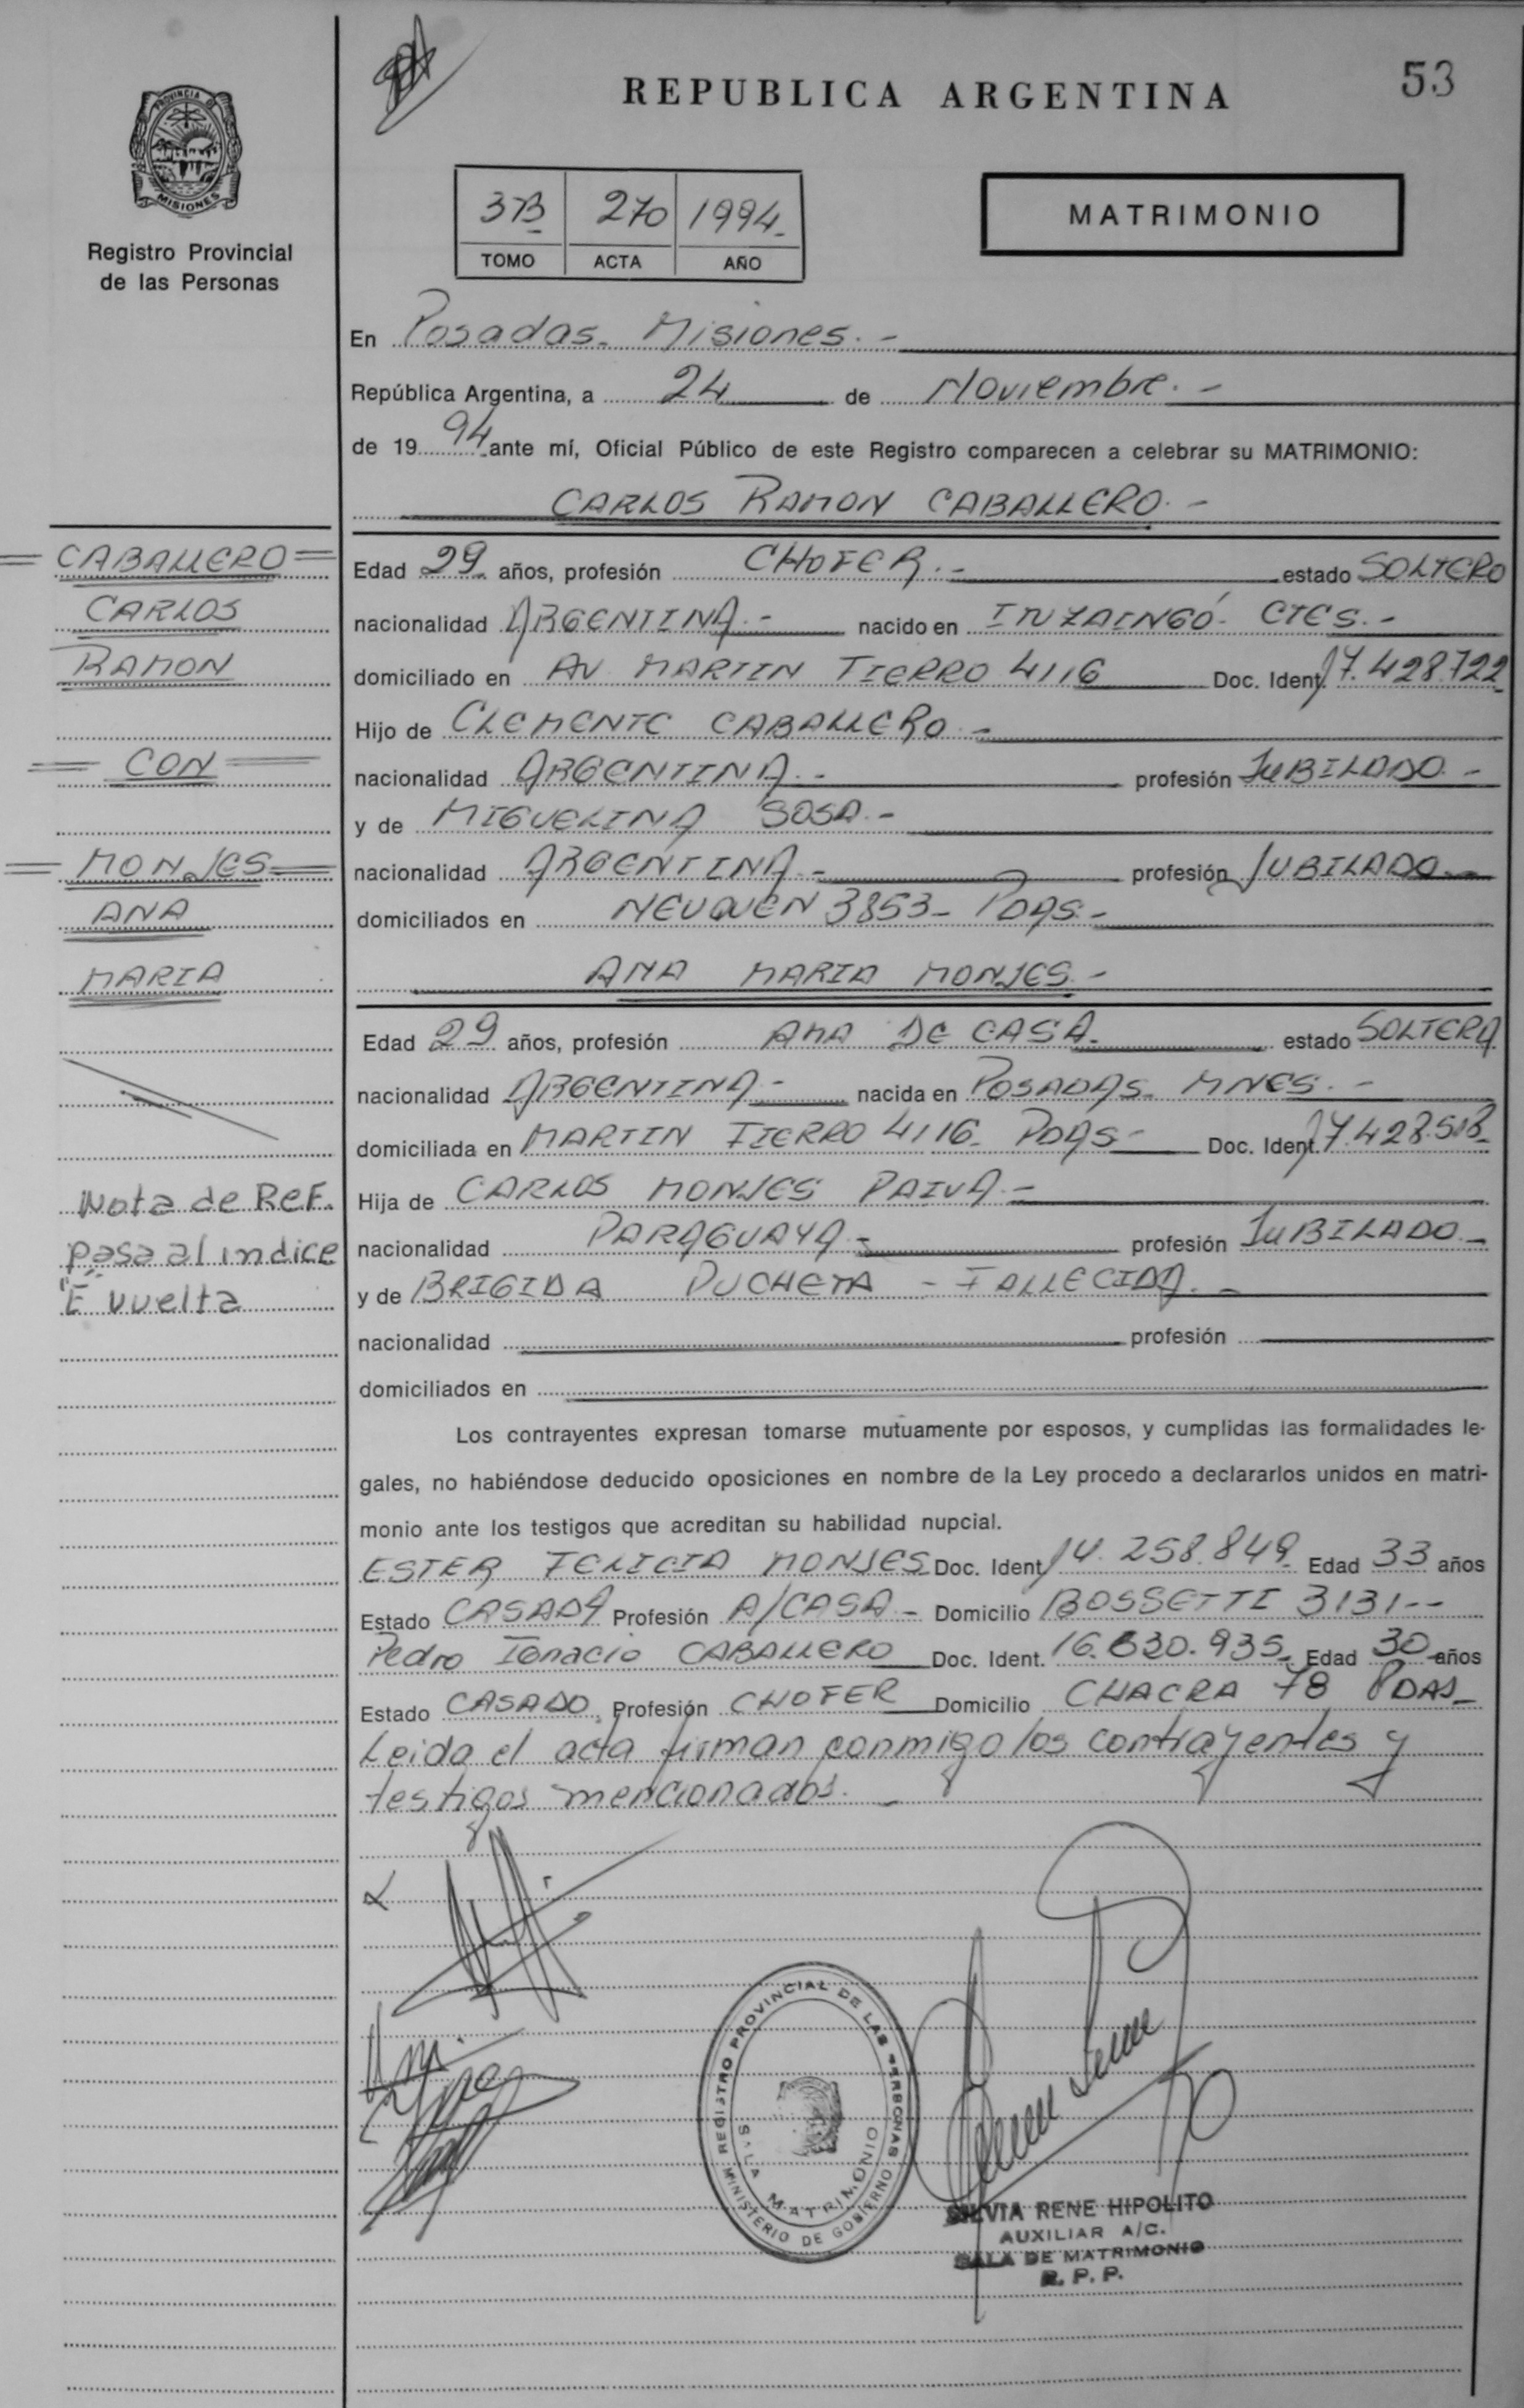 53
REPUBLICA ARGENTINA
PROVINCIA D
MISIONES
Registro Provincial
de las Personas
3B 270 1994.-
TOMO ACTA AÑO
MATRIMONIO
En Posadas. Misiones.-
República Argentina, a 24 de Noviembre.-
de 19 94 ante mí, Oficial Público de este Registro comparecen a celebrar su MATRIMONIO:
CARLOS RAMON CABALLERO.-
Edad 29 años, profesión CHOFER.- estado SOLTERO
nacionalidad ARGENTINA.- nacido en ITUZAINGÓ- CTES.-
domiciliado en AV MARTIN FIERRO 4116 Doc. Ident. 17.428.722
Hijo de CLEMENTE CABALLERO.-
nacionalidad ARGENTINA.- profesión JUBILADO.-
y de MIGUELINA SOSA.-
nacionalidad ARGENTINA.- profesión JUBILADO.-
domiciliados en NEUQUEN 3853- PDAS.-
ANA MARIA MONJES.-
Edad 29 años, profesión AMA DE CASA.- estado SOLTERA
nacionalidad ARGENTINA.- nacida en POSADAS- MNES.-
domiciliada en MARTIN FIERRO 4116- PDAS- Doc. Ident.
Hija de CARLOS MONJES PAIVA.-
nacionalidad PARAGUAYA- profesión JUBILADO.-
y de BRIGIDA PUCHETA - FALLECIDA.-
nacionalidad profesión
domiciliados en
Los contrayentes expresan tomarse mutuamente por esposos, y cumplidas las formalidades le-
gales, no habiéndose deducido oposiciones en nombre de la Ley procedo a declararlos unidos en matri-
monio ante los testigos que acreditan su habilidad nupcial.
ESTER FELICIA MONJES Doc. Ident. 14.258.849 Edad 33 años
Estado CASADA Profesión A/CASA.- Domicilio BOSSETTI 3131--
Pedro Ignacio CABALLERO Doc. Ident. Edad 30 años
Estado CASADO Profesión CHOFER Domicilio CHACRA 78 PDAS-
Leida el acta firman conmigo los contrayentes y
testigos mencionados.-
= CABALLERO =
CARLOS
RAMON
= CON =
= MONJES =
ANA
MARIA
Nota de Ref.
pasa al indice
"E" vuelta
REGISTRO PROVINCIAL DE LAS PERSONAS
SALA MATRIMONIO
MINISTERIO DE GOBIERNO
SILVIA RENE HIPOLITO
AUXILIAR A/C.
SALA DE MATRIMONIO
R. P. P.